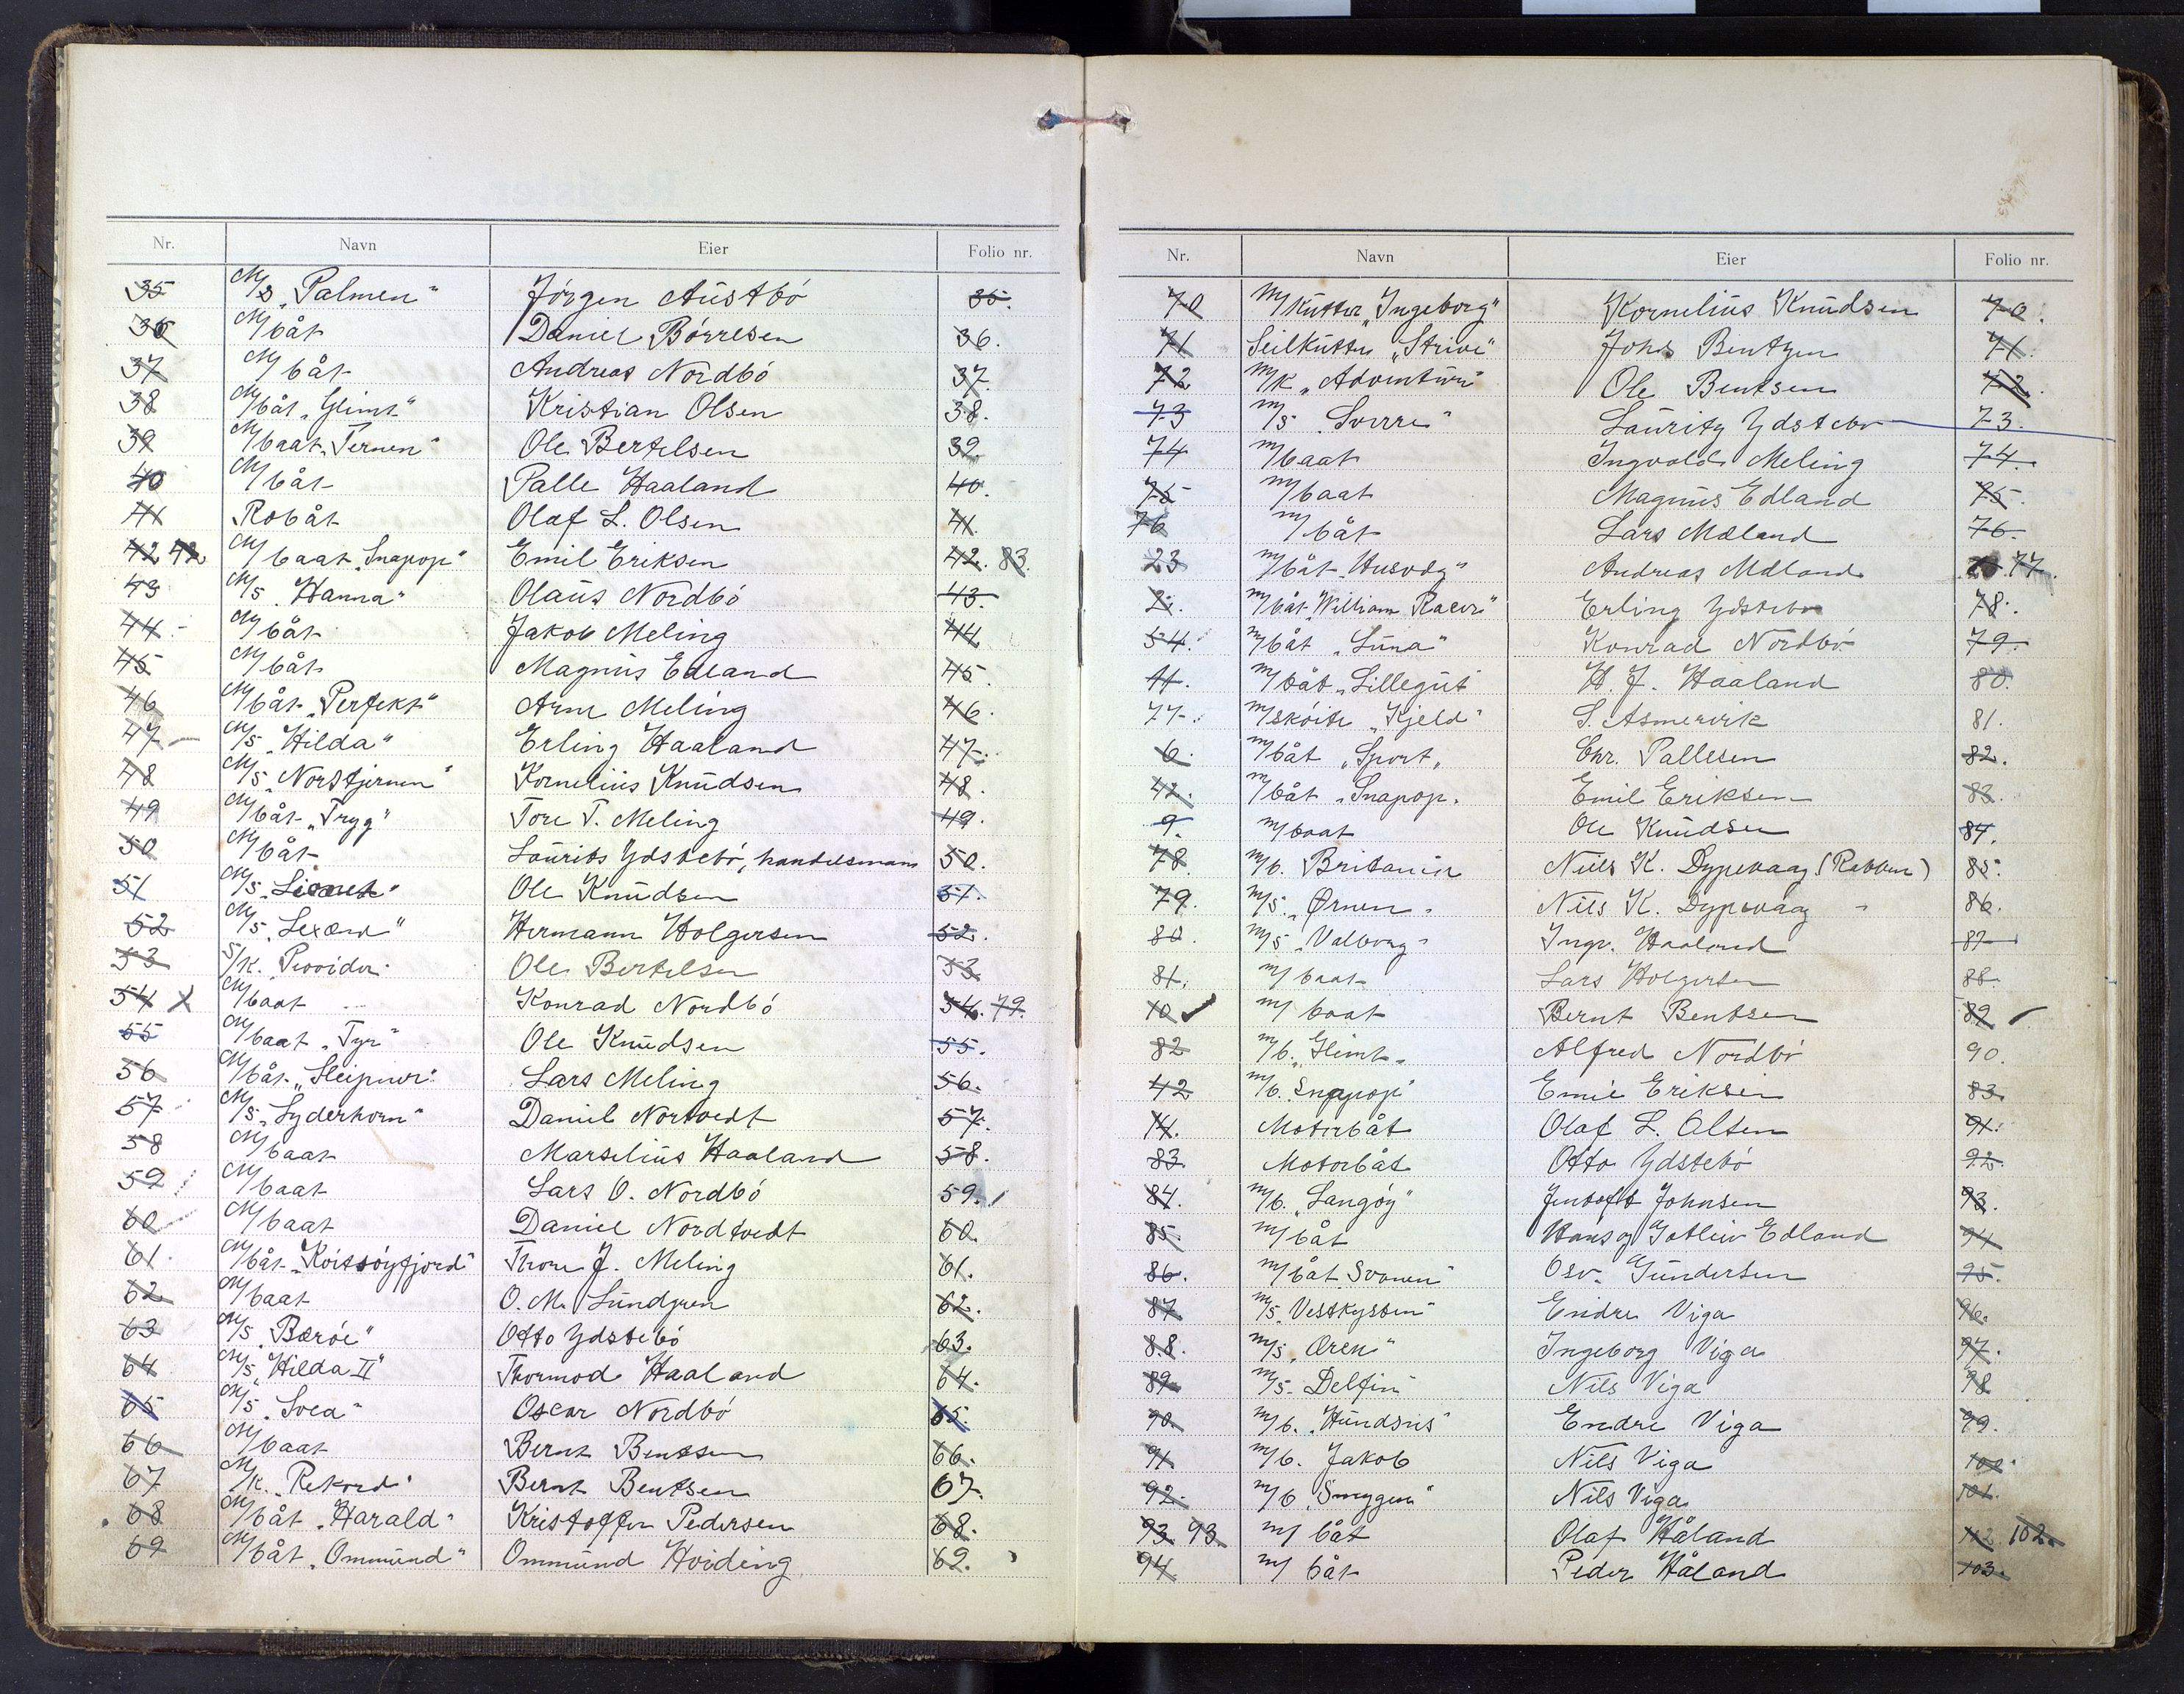 Nr. Navn Eier Folio nr.
35 M/s „Palmen“ Jörgen Austbö 35.
36 M/båt Daniel Börresen 36.
37 M/båt Andreas Nordbö 37.
38 M/båt „Glimt“ Kristian Olsen 38.
39 M/baat „Ternen“ Ole Bertelsen 39.
40 M/båt Palle Haaland 40.
41 Robåt Olaf L. Olsen 41.
42 42 M/baat „Snapop“ Emil Eriksen 42. 83.
43 M/s „Hanna“ Olaus Nordbö 43.
44 M/båt Jakob Meling 44
45 M/båt Magnus Edland 45.
46 M/båt „Perfekt“ Arne Meling 46.
47 M/s „Hilda“ Erling Haaland 47.
48 M/s „Norstjernen“ Kornelius Knudsen 48.
49 M/båt „Tryg“ Tore T. Meling 49.
50 M/båt Laurits Ydstebö, handelsmann 50.
51 M/s Ole Knudsen 51.
52 M/s Hermann Holgersen 52.
53 S/k. Ole Bertelsen 53
54 M/baat Konrad Nordbö 54. 79.
55 M/baat „Tyr“ Ole Knudsen 55.
56 M/båt „Sleipner“ Lars Meling 56.
57 M/s „Lyderhorn“ Daniel Nortvedt 57.
58 M/baat Marselius Haaland 58.
59 M/baat Lars O. Nordbö 59.
60 M/baat Daniel Nordtvedt 60.
61. M/båt „Koitsöyfjord“ Thore J. Meling 61.
62 M/baat O. M. Lundgren 62.
63 M/s „Baröe“ Otto Ydstebö 63.
64 M/s „Hilda II“ Thormod Haaland 64.
65 M/s „Svea“ Oscar Nordbö 65.
66 M/baat Bernt Bentsen 66.
67 M/k. „Rekord“ Bernt Bentsen 67.
68 M/båt „Harald“ Kristoffer Pedersen 68.
69 M/båt „Ommund“ Ommund Hviding 69.
Nr. Navn Eier Folio nr.
70 M/Kutter „Ingeborg“ Kornelius Knudsen 70.
71 Seilkutter „Strive“ Johs Bentzen 71.
72 M/k „Adventure“ Ole Bentsen 72.
73 M/s „Sverre“ Lauritz Ydstebø 73.
74 M/baat Ingvald Meling 74.
75 M/baat Magnus Edland 75.
76 M/båt Lars Mæland 76.
23 M/båt „Husvåg“ Andreas Mæland 77.
2. M/båt „William Racer“ Erling Ydstebø 78.
54. M/båt „Luna“ Konrad Nordbö 79.
11. M/båt „Lillegut“ H. J. Haaland 80.
77. M/sköite „Kjeld“ S. Asmervik 81.
6. M/båt „Sport„ Chr. Pallesen 82.
42. M/båt „Snapop. Emil Eriksen 83.
9. M/baat Ole Knudsen 84.
78. M/b. Britania Niels K. Dypevaag (Rabben) 85.
79. M/s. „Ørnen“ Nils K. Dypevaag " 86.
80. M/s „Valborg“ Ingv. Haaland 87
81. M/baat Lars Holgersen 88.
10 M/baat Bernt Bentsen 89
82 M/b. „Glimt“ Alfred Nordbö 90.
42 M/b. „Snapop“ Emil Eriksen 83.
14. Motorbåt Olaf L. Olsen 91.
83. Motorbåt Otto Ydstebö 92.
84. M/b. „Langöy“ Jentoft Johnsen 93.
85. M/båt Hans og Gotleiv Edland 94
86. M/båt Svanen“ Osv. Gundersen 95.
87 M/s. Vestkysten“ Endre Viga 96.
88. M/s „Oren“ Ingeborg Viga 97.
89. M/s- Delfin“ Nils Viga 98
90. M/b. „Hundsnes“ Endre Viga 99.
91 M/b. Jakob Nils Viga 100.
92. M/b „Smygen“ Nils Viga 101.
93. 93. M/båt Olaf Håland 102 102.
94. M/båt Peder Håland 103.